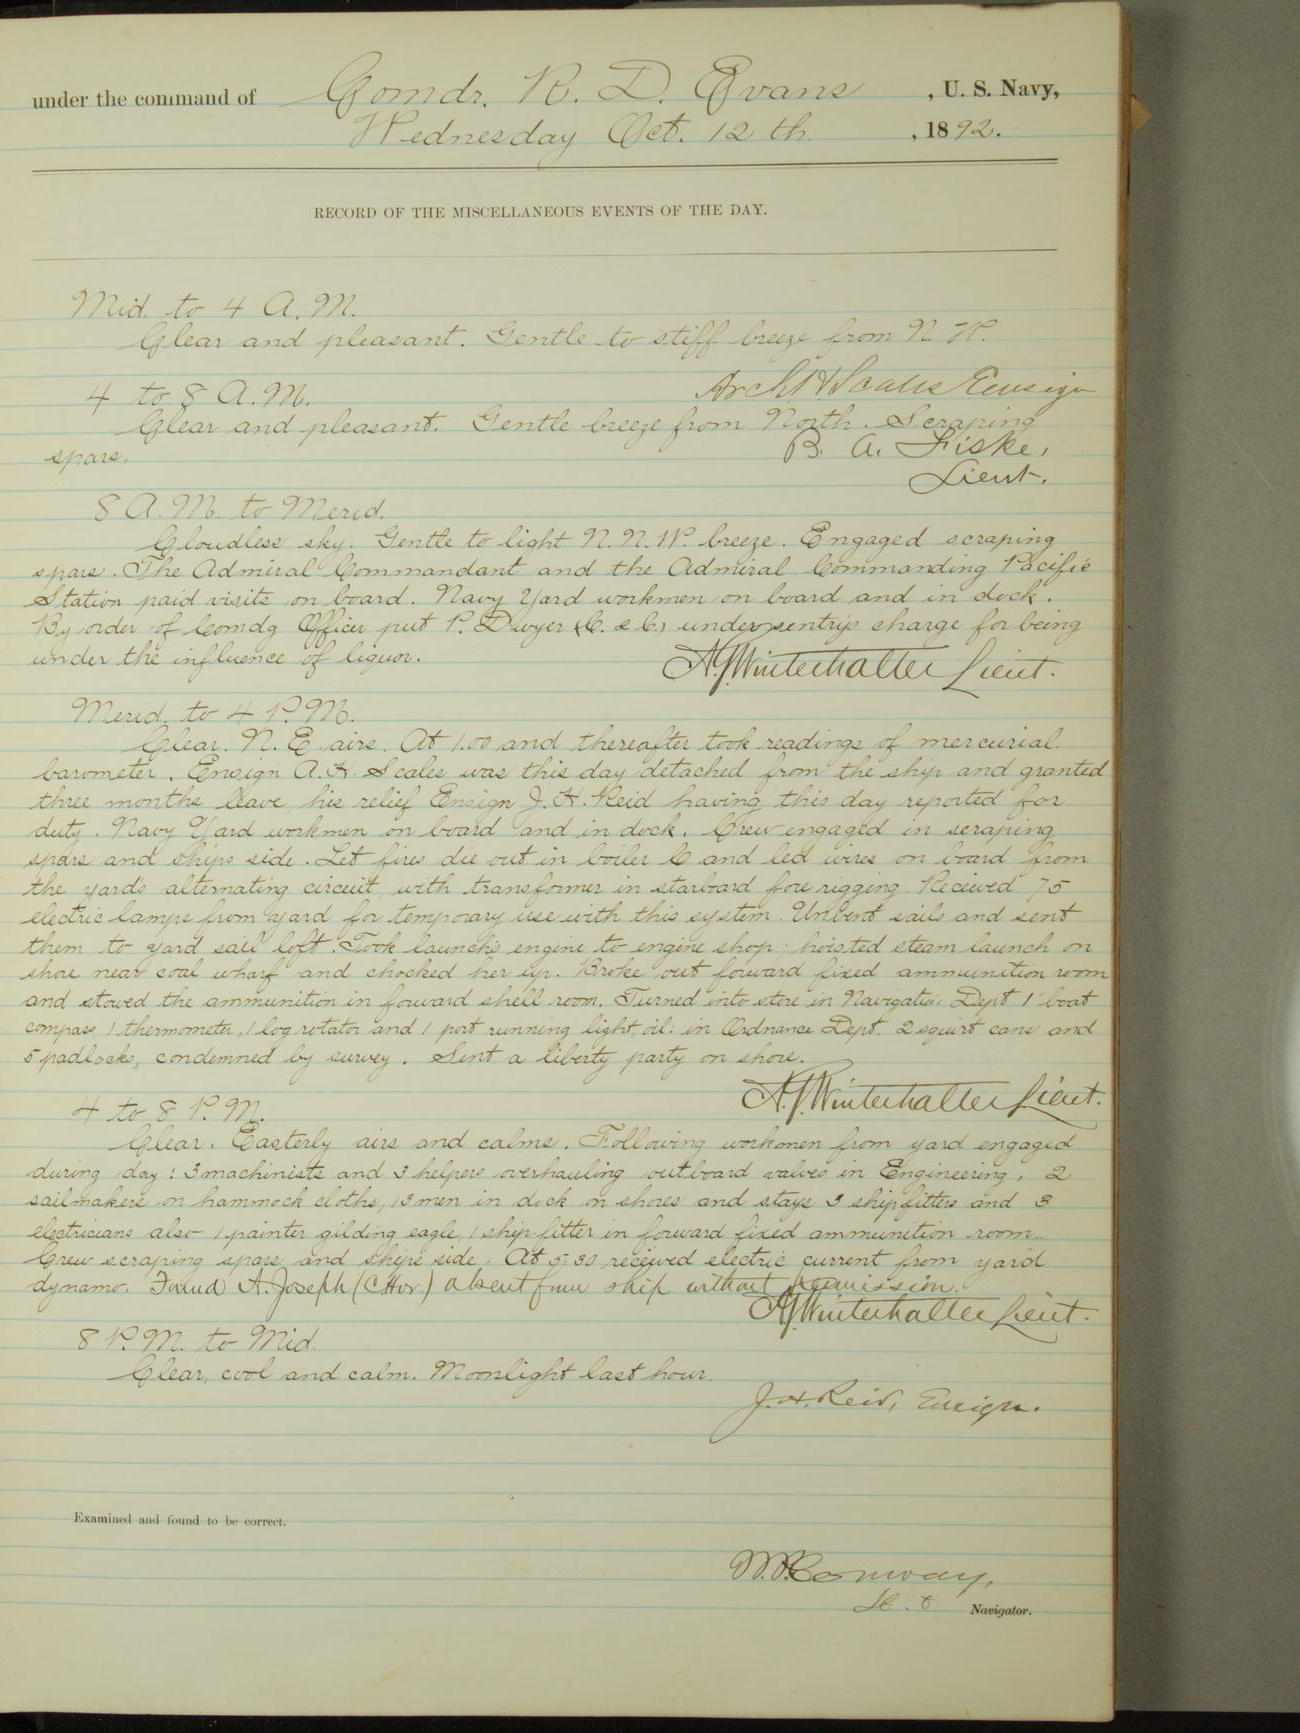 under the command of Comdr. R. D. Evans, U. S. Navy,
Wednesday Oct. 12th, 1892.
RECORD OF THE MISCELLANEOUS EVENTS OF THE DAY.
Mid. to 4 A.M.
Clear and pleasant. Gentle to stiff breeze from N. W.
Arch. H. Scales Ensign
4 to 8 A.M.
Clear and pleasant. Gentle breeze from North. Scraping
spars.
B. A. Fiske,
Lieut.
8 A.M. to Merid.
Cloudless sky. Gentle to light N.N.W. breeze. Engaged scraping
spars. The Admiral Commandant and the Admiral Commanding Pacific
Station paid visits on board. Navy Yard workmen on board and in dock.
By order of Comdg Officer put P. Dwyer (C. & C.) under sentry's charge for being
under the influence of liquor.
A.G. Winterhalter Lieut.
Merid. to 4 P.M.
Clear. N.E. airs. At 1.00 and thereafter took readings of mercurial
barometer. Ensign A.H. Scales was this day detached from the ship and granted
three months leave, his relief Ensign J. H. Reid having this day reported for
duty. Navy Yard workmen on board and in dock. Crew engaged in scraping
spars and ships side. Let fires die out in boiler C and led wires on board from
the yard's alternating circuit, with transformer in starboard fore rigging. Received 75
electric lamps from yard for temporary use with this system. Unbent sails and sent
them to yard sail loft. Took launch's engine to engine shop; hoisted steam launch on
shore near coal wharf and chocked her up. Broke out forward fixed ammunition room
and stowed the ammunition in forward shell room. Turned into store in Navigation Dept. 1 boat
compass, 1 thermometer, 1 log rotator and 1 port running light, oil; in Ordnance Dept. 2 squirt cans and
5 padlocks, condemned by survey. Sent a liberty party on shore.
A.G. Winterhalter Lieut.
4 to 8 P.M.
Clear. Easterly airs and calms. Following workmen from yard engaged
during day: 3 machinists and 3 helpers overhauling outboard valves in Engineering, 2
sailmakers on hammock cloths, 13 men in dock on shores and stays 3 shipfitters and 3
electricians also 1 painter gilding eagle, 1 ship-fitter in forward fixed ammunition room.
Crew scraping spars and ship's side. At 5:30 received electric current from yard
dynamo. Found A. Joseph absent from ship without permission.
A.G. Winterhalter Lieut.
8 P.M. to Mid.
Clear, cool and calm. Moonlight last hour.
J. H. Reid, Ensign.
Examined and found to be correct.
W.P. Conway,
Navigator.